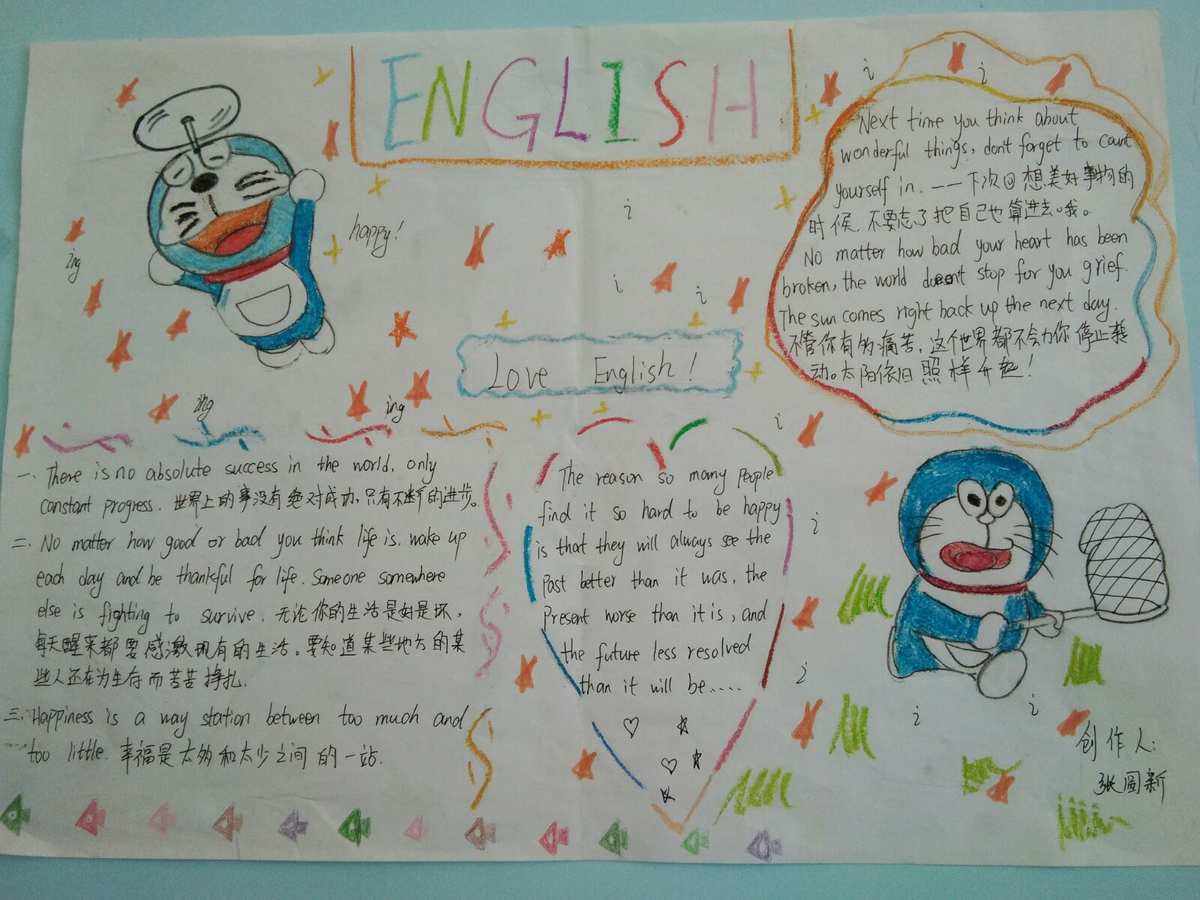 ENGLISH
happy!
ing
ing
ing
Love English!
Next time you think about
wonderful things, dont forget to count
yourself in. ——下次回想美好事物的
时候,不要忘了把自己也算进去。哦。
No matter how bad your heart has been
broken, the world doesnt stop for you grief.
The sun comes right back up the next day.
不管你有多痛苦,这个世界都不会为你停止转
动。太阳依旧照样升起!
一. There is no absolute success in the world, only
constant progress. 世界上的事没有绝对成功,只有不断的进步。
二. No matter how good or bad you think life is. wake up
each day and be thankful for life. Someone somewhere
else is fighting to survive. 无论你的生活是好是坏,
每天醒来都要感激现有的生活。要知道某些地方的某
些人还在为生存而苦苦挣扎.
三. Happiness is a way station between too much and
too little. 幸福是太多和太少之间的一站.
The reason so many people
find it so hard to be happy
is that they will always see the
Past better than it was, the
Present worse than it is, and
the future less resolved
than it will be.....
i
i
i
i
i
i
i
i
i
i
创作人:
张圆新